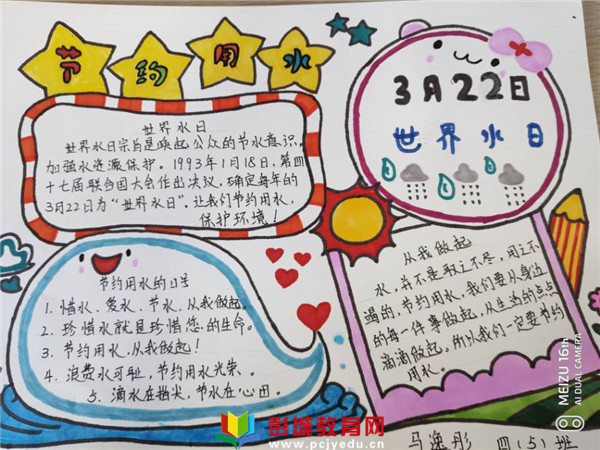 节约用水
世界水日
世界水日宗旨是唤起公众的节水意识，
加强水资源保护。1993年1月18日，第四
十七届联合国大会作出决议，确定每年的
3月22日为“世界水日”。让我们节约用水，
保护环境！
3月22日
世界水日
节约用水的口号
1. 惜水、爱水、节水、从我做起。
2. 珍惜水就是珍惜您的生命。
3. 节约用水，从我做起！
4. 浪费水可耻，节约用水光荣。
5. 滴水在指尖，节水在心田。
从我做起
水，并不是取之不尽，用之不
竭的，节约用水，我们要从身边
的每一件事做起，从生活的点点
滴滴做起。所以我们一定要节约
用水。
马逸彤 四（5）班
彭城教育网
www.pcjyedu.cn
MEIZU 16th
AI DUAL CAMERA